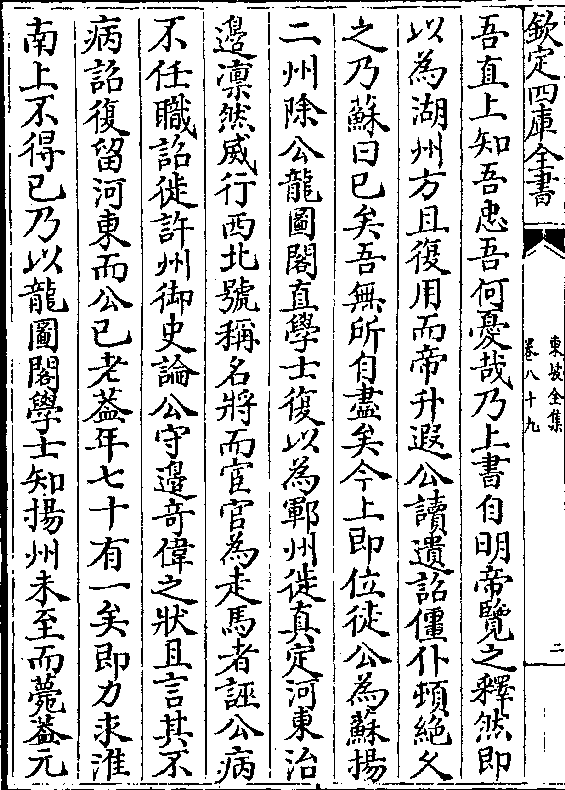 欽定四庫全書
東坡全集
卷八十九
二
吾直上知吾忠吾何憂哉乃上書自明帝覽之釋然即
以為湖州方且復用而帝升遐公讀遺詔僵仆頓絶久
之乃蘇曰已矣吾無所自盡矣今上即位徙公為蘇揚
二州除公龍圖閣直學士復以為鄆州徙真定河東治
邊凜然威行西北號稱名將而宦官為走馬者誣公病
不任職詔徙許州御史論公守邊竒偉之狀且言其不
病詔復留河東而公已老葢年七十有一矣即力求淮
南上不得已乃以龍圖閣學士知揚州未至而薨葢元